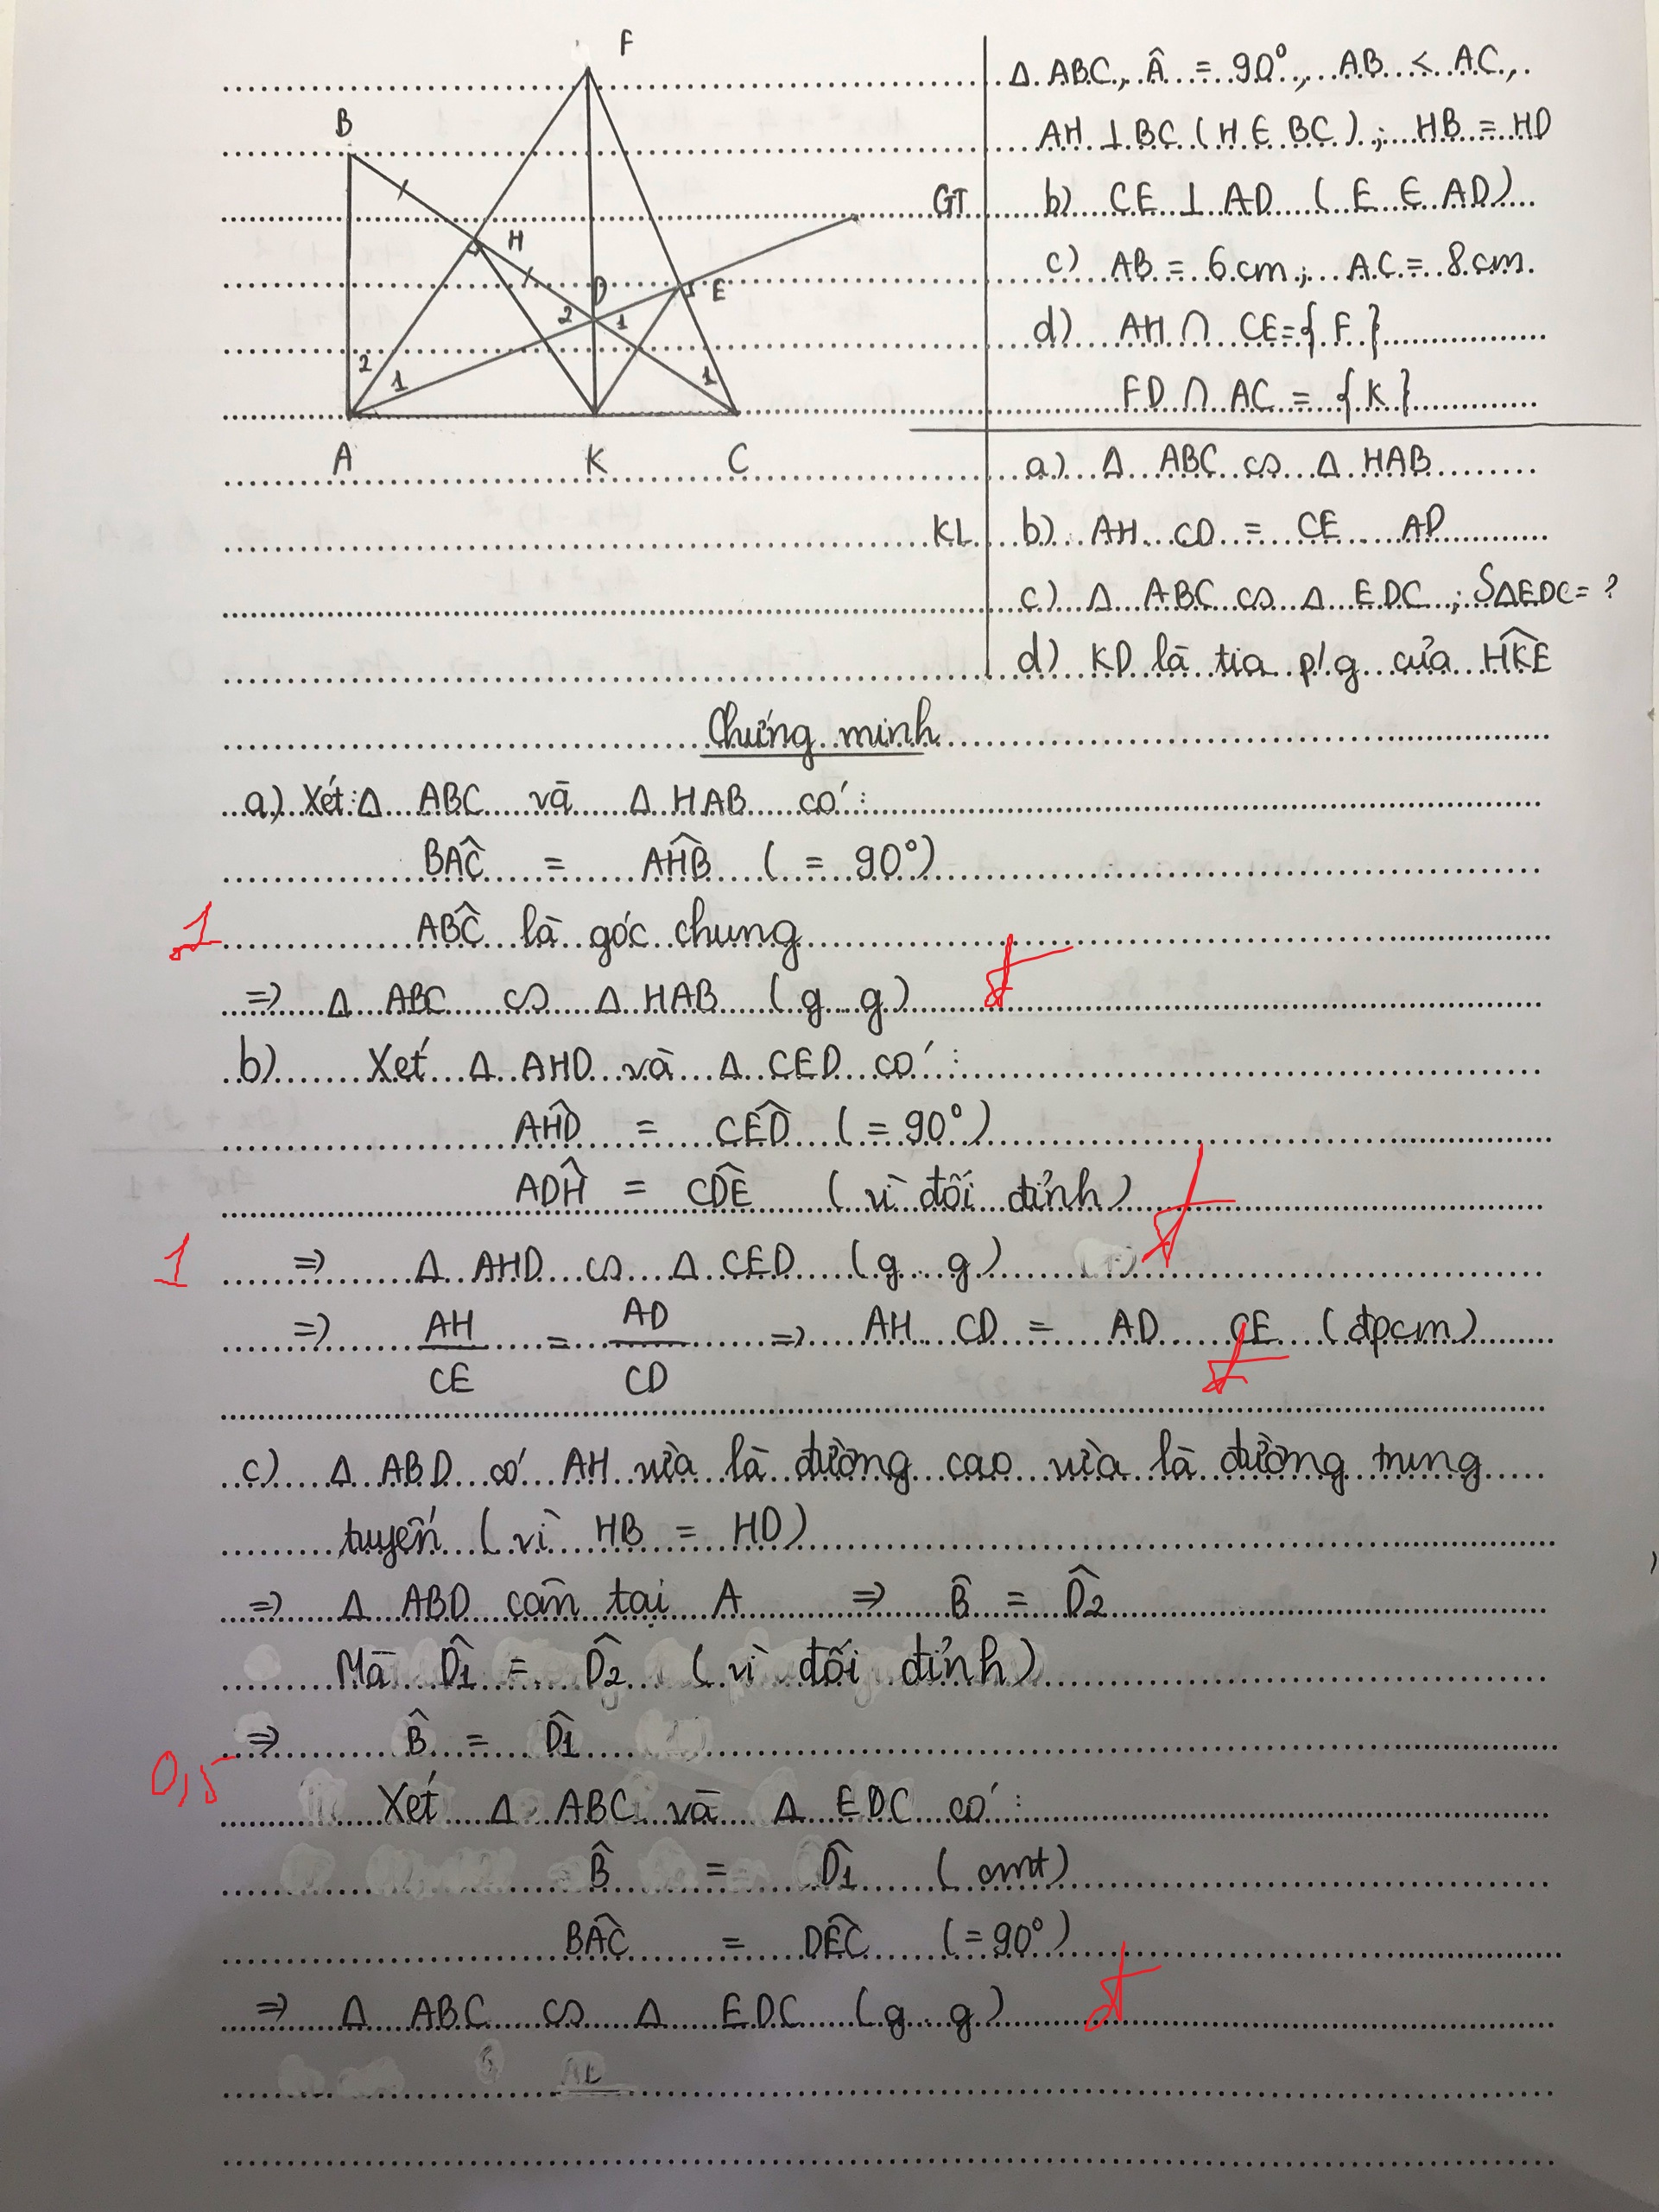 F
B
H
D
E
2
1
2
1
1
A K C
Δ ABC, Â = 90°, AB < AC,
AH ⊥ BC (H ∈ BC); HB = HD
GT b) CE ⊥ AD (E ∈ AD)
c) AB = 6cm; AC = 8cm.
d) AH ∩ CE = {F}
FD ∩ AC = {K}
a) Δ ABC ∽ Δ HAB
KL b) AH . CD = CE . AD
c) Δ ABC ∽ Δ EDC ; SΔEDC = ?
d) KD là tia p/g của HK̂E
Chứng minh
a) Xét Δ ABC và Δ HAB có:
BÂC = AĤB (= 90°)
1
AB̂C là góc chung
=> Δ ABC ∽ Δ HAB (g . g) đ
b) Xét Δ AHD và Δ CED có:
AĤD = CÊD (= 90°)
AD̂H = CD̂E (vì đối đỉnh)
1 => Δ AHD ∽ Δ CED (g . g) đ
=> AH/CE = AD/CD => AH . CD = AD . CE (đpcm)
đ
c) Δ ABD có AH vừa là đường cao vừa là đường trung
tuyến (vì HB = HD)
=> Δ ABD cân tại A => B̂ = D̂2
Mà D̂1 = D̂2 (vì đối đỉnh)
=> B̂ = D̂1
0,5
Xét Δ ABC và Δ EDC có:
B̂ = D̂1 (cmt)
BÂC = DÊC (= 90°)
=> Δ ABC ∽ Δ EDC (g . g) đ